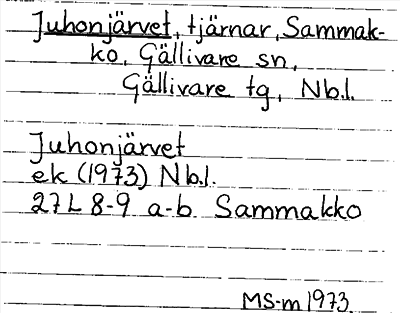 Juhonjärvet, tjärnar, Sammak-
ko, Gällivare sn,
Gällivare tg, Nb.l.
Juhonjärvet
ek (1973) Nb.l.
27L 8-9 a-b Sammakko
MS-m 1973